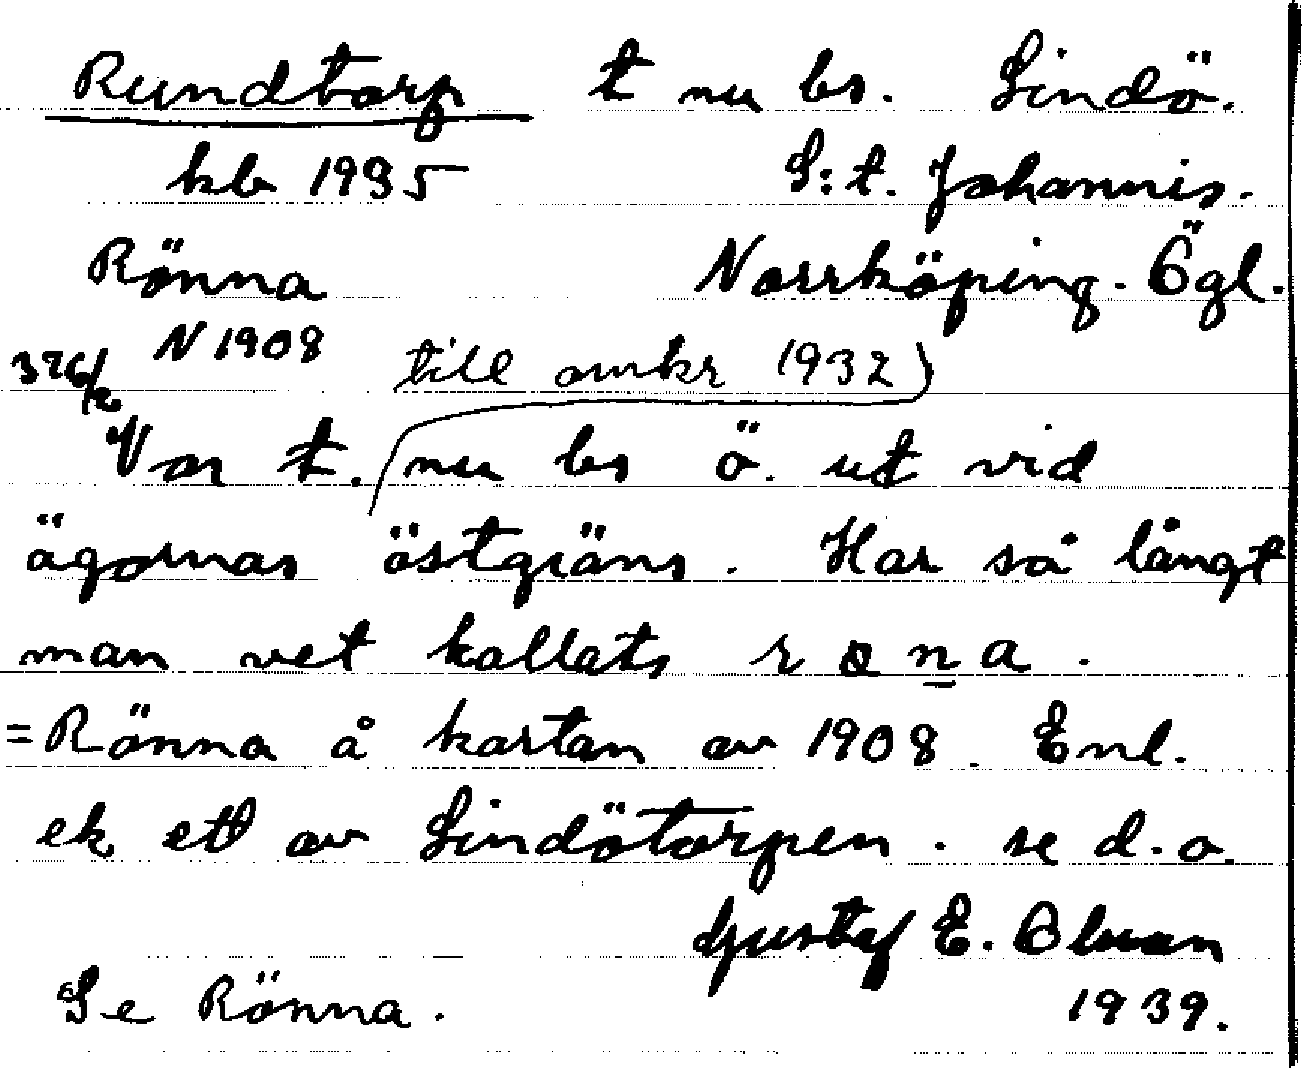 Rundtorp t nu bs. Lindö.
kb 1935 S:t. Johannis.
Rönna Norrköping. Ögl.
N 1908
376/2 till omkr 1932)
Var t. nu bs ö. ut vid
ägornas östgräns. Har så långt
man vet kallats r ø n a .
=Rönna å kartan av 1908. Enl.
ek ett av Lindötorpen. se d.o.
Gustaf E. Olsson
Se Rönna. 1939.